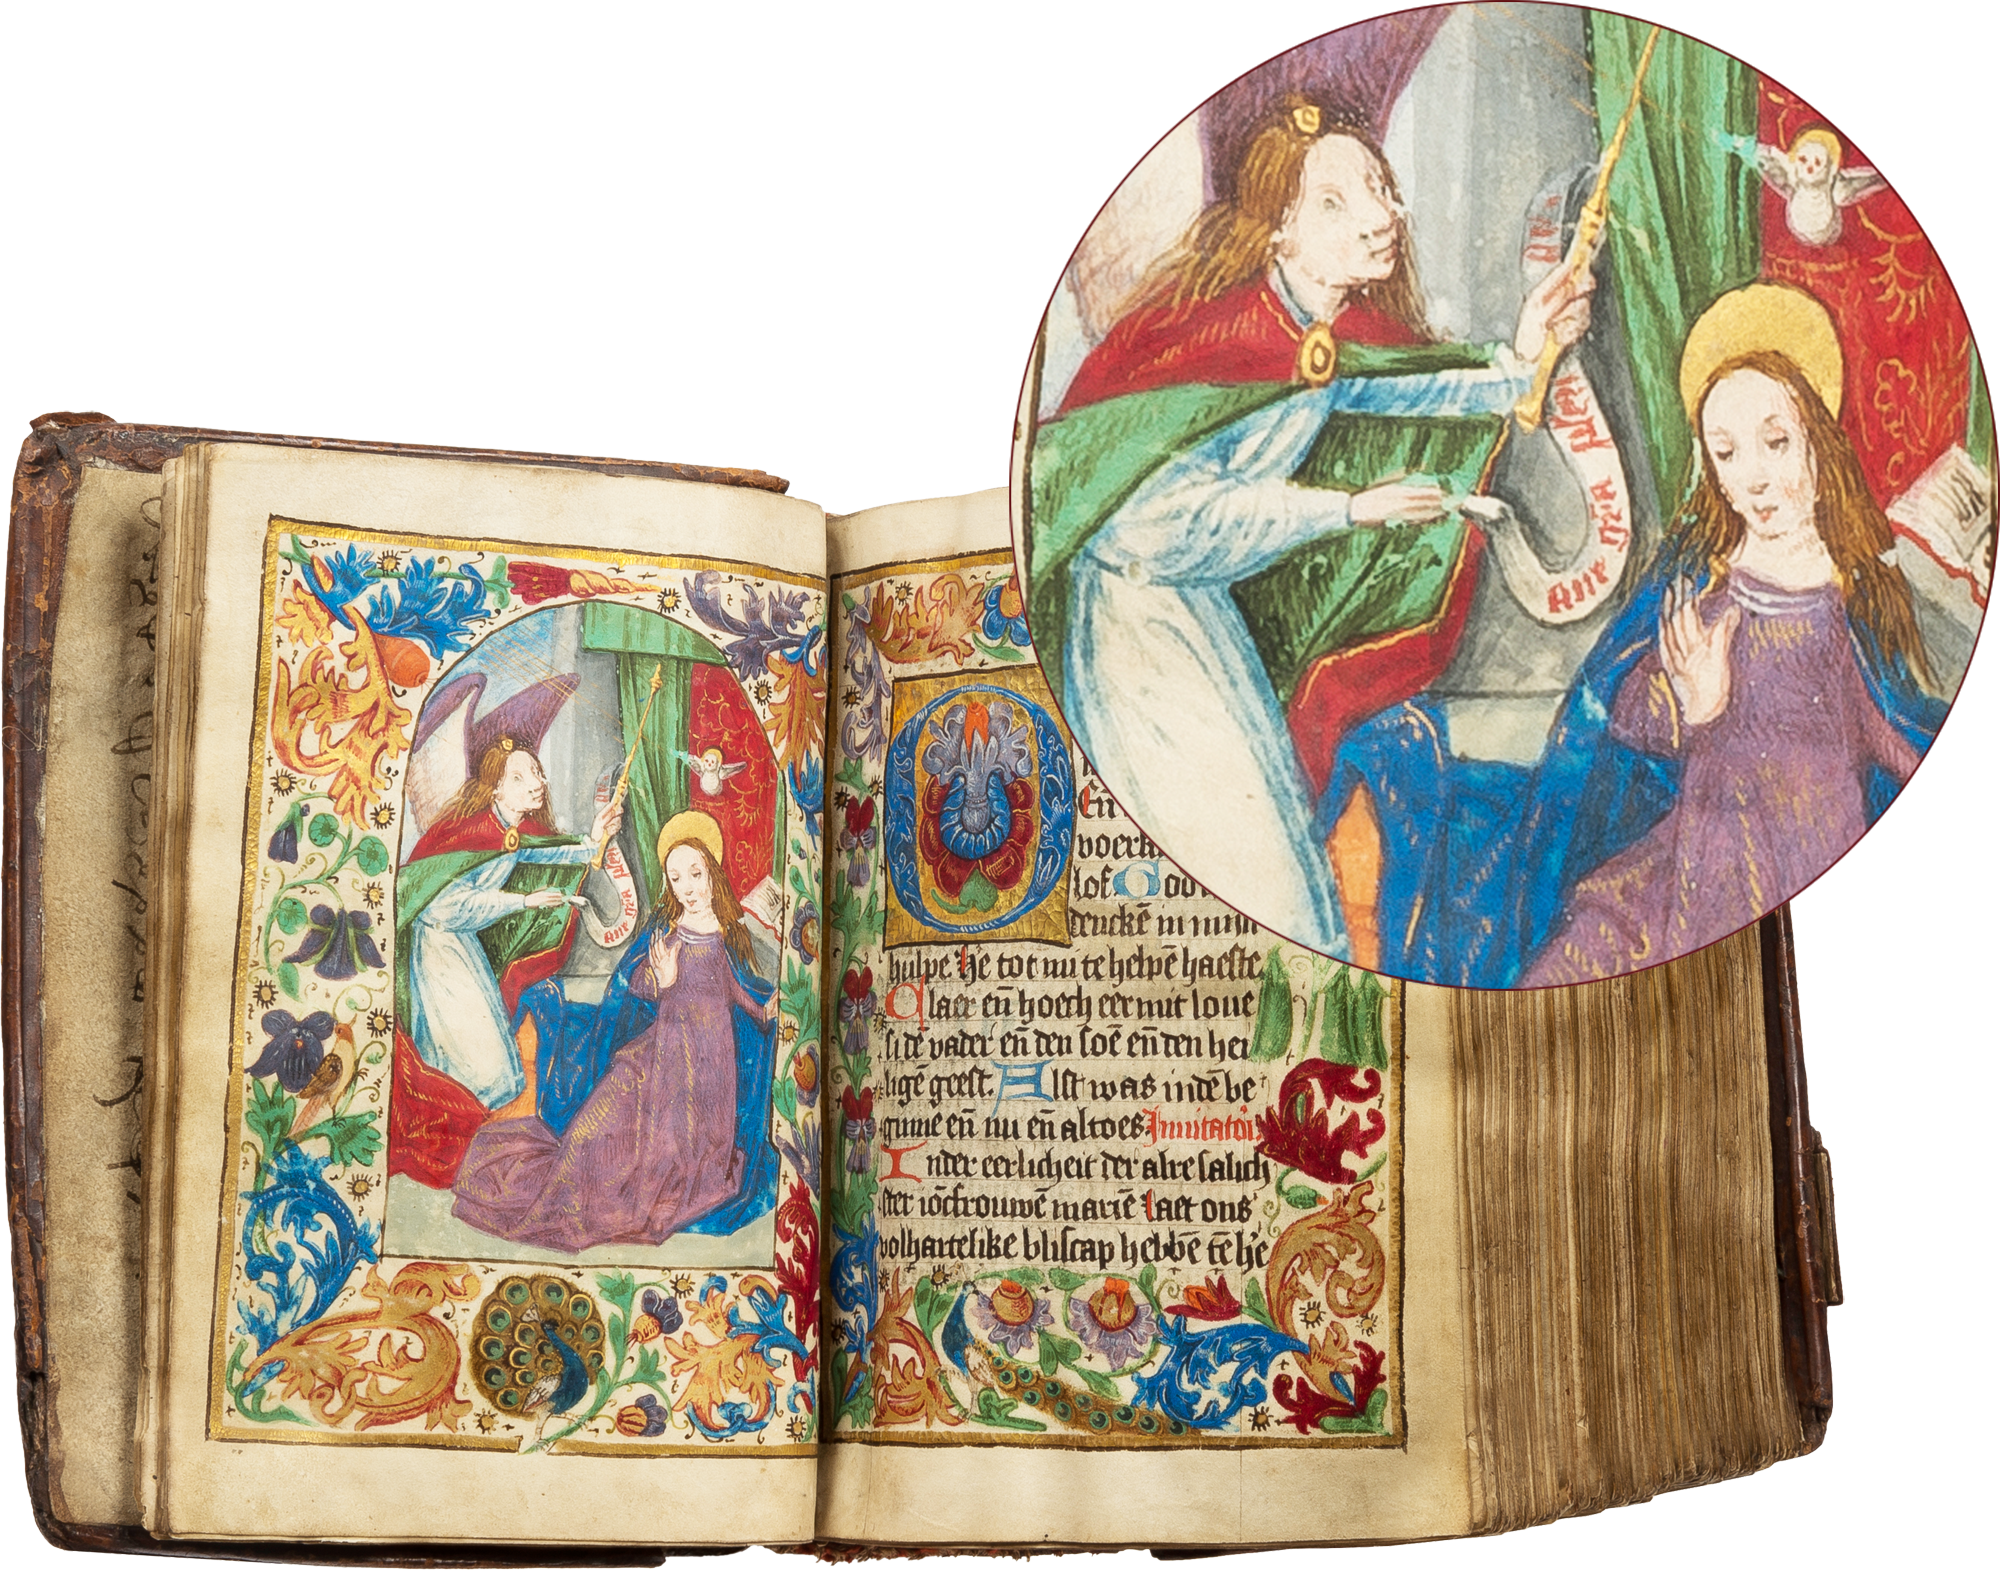 Aue gr̄a
En̄
lof God
denckē in mijn
hulpe. He tot mi te helpē haeste.
Claer en̄ hoech eer mit loue
si dē vader en̄ den soē en̄ den hei
ligē geest. Alst was indē be
ginne en̄ nu en̄ altoes. Inuitatoı̄
Inder eerlicheit der alre salich
ster iōcfrouwē mariē laet ons
volhartelike bliscap hebbē tē h'e